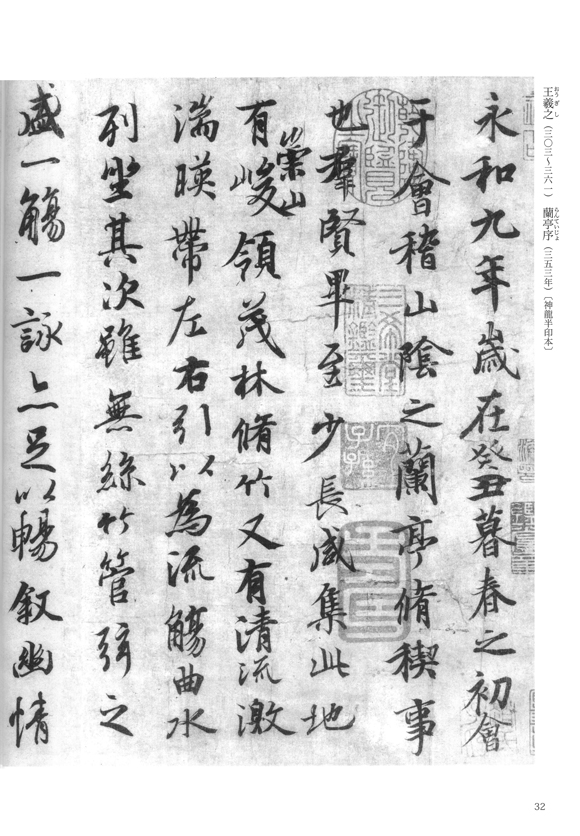 王羲之（三〇三～三六一）　蘭亭序（三五三年）〔神龍半印本〕
おうぎし　らんていじょ
永和九年歲在癸丑暮春之初會
于會稽山陰之蘭亭脩稧事
也羣賢畢至少長咸集此地
有崇山峻領茂林脩竹又有清流激
湍暎帶左右引以為流觴曲水
列坐其次雖無絲竹管弦之
盛一觴一詠亦足以暢敘幽情
32